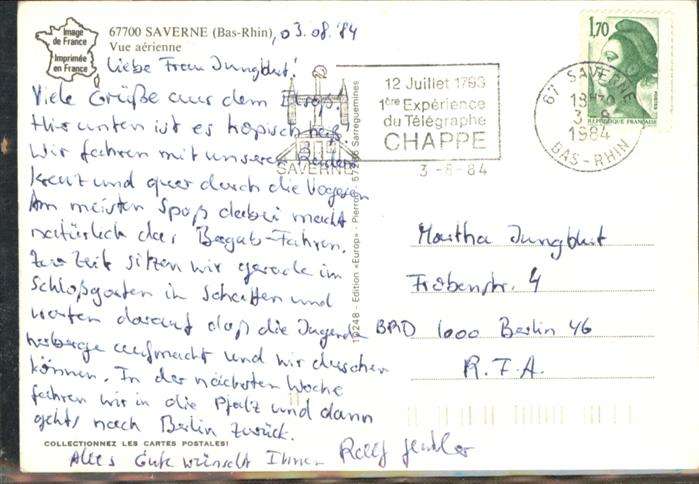 Image
de France
Imprimée
en France
67700 SAVERNE (Bas-Rhin), 03.08.84
Vue aérienne
Liebe Frau Jungblut!
Viele Grüße aus dem
Hier unten ist es tropisch heiß!
Wir fahren mit unseren Rädern
kreuz und quer durch die Vogesen
Am meisten Spaß dabei macht
natürlich das Bergab-Fahren.
Zur Zeit sitzen wir gerade im
Schloßgarten im Schatten und
warten darauf daß die Jugend-
herberge aufmacht und wir duschen
können. In der nächsten Woche
fahren wir in die Pfalz und dann
gehts nach Berlin zurück.
COLLECTIONNEZ LES CARTES POSTALES!
Alles Gute wünscht Ihnen Ralf
Edition «Europ» - Pierron - Sarreguemines
SAVERNE
12 Juillet 1793
1ère Expérience
du Télégraphe
CHAPPE
3-8-84
67 SAVERNE
3-8
1984
BAS-RHIN
1,70
REPUBLIQUE FRANÇAISE
Martha Jungblut
Fröbenstr. 4
BRD 1000 Berlin 46
R.F.A.